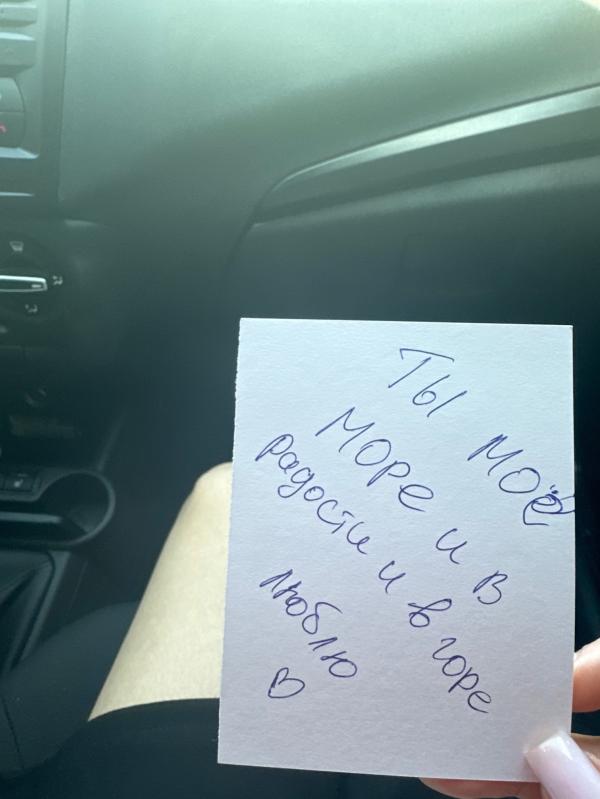 Ты моё
море и в
радости и в горе
люблю